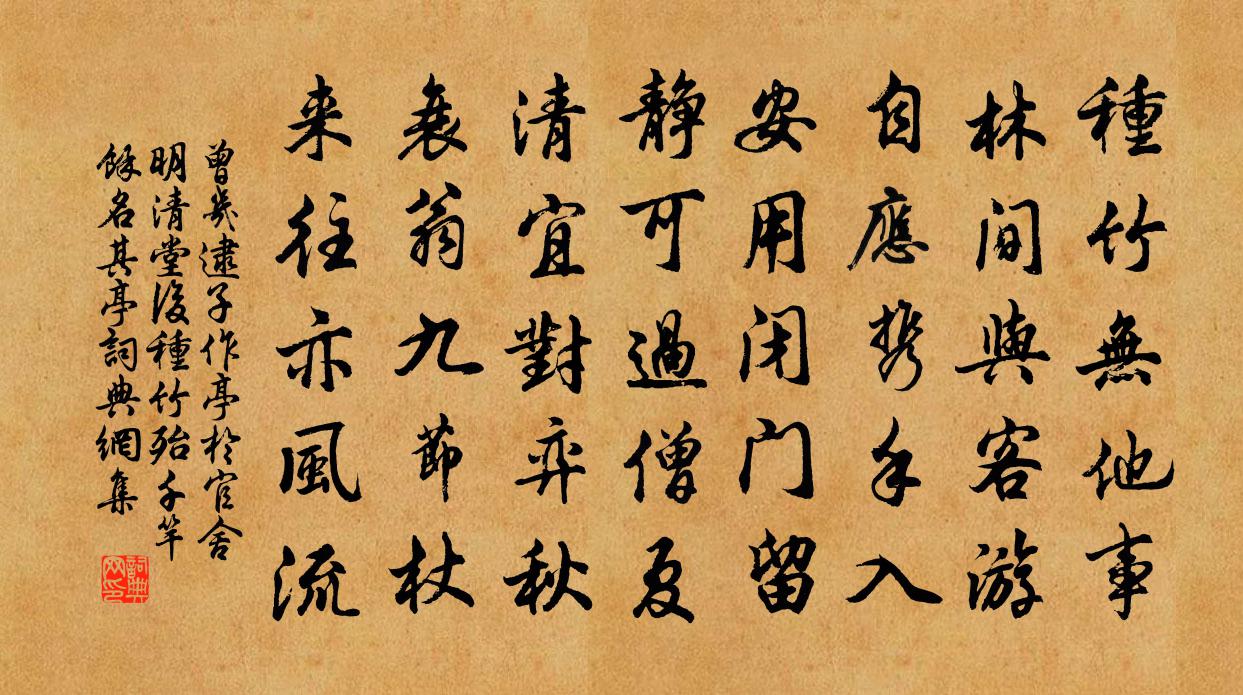 種竹無他事
林間與客游
自應携手入
安用闭门留
静可過僧夏
清宜對弈秋
衰翁九節杖
来往亦風流
曾幾逮子作亭於官舍
明清堂後種竹殆千竿
餘名其亭詞典網集
詞典
网印